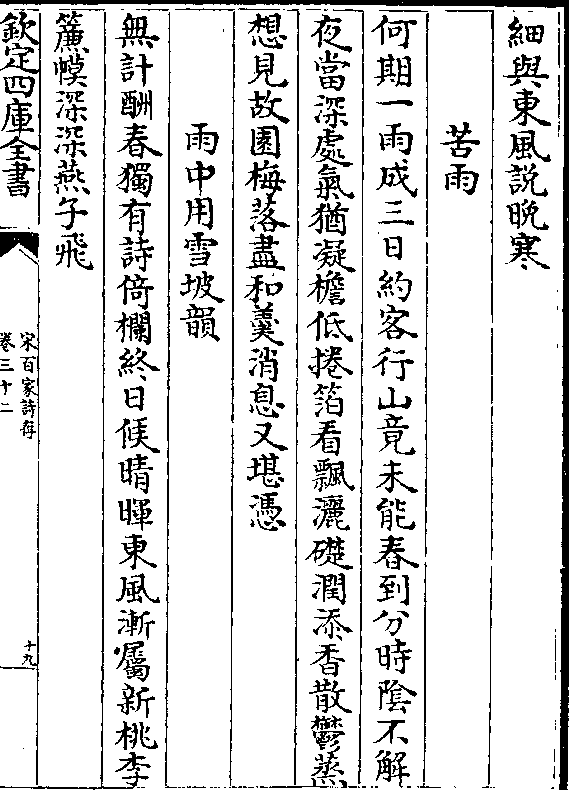 細與東風說晚寒
苦雨
何期一雨成三日約客行山竟未能春到分時陰不解
夜當深處氣猶凝檐低捲箔看飄灑礎潤添香散鬱蒸
想見故園梅落盡和羮消息又堪憑
雨中用雪坡韻
無計酬春獨有詩倚欄終日候晴暉東風漸屬新桃李
簾幙深深燕子飛
欽定四庫全書
宋百家詩存
卷三十二
十九